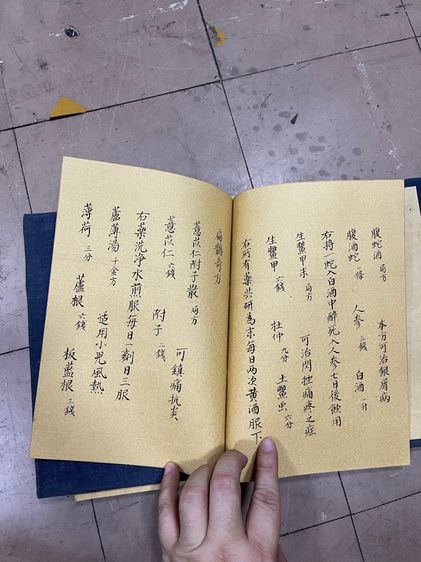 腹蛇酒 局方 本方可治銀屑病
腹酒蛇 一條 人參 三錢 白酒 一斤
右將一蛇入白酒中醉死入人參七日後飲用
生鱉甲末 局方 可治閃挫痛疼之症
生鱉甲 六錢 杜仲 九分 土鱉虫 六分
右所有藥共研為末每日兩次黃酒服下
扁鵲奇方
薏苡仁附子散 局方 可鎮痛抗炎
薏苡仁 一錢 附子 二錢
右藥洗淨水煎服每日一劑日三服
蘆薄湯 千金方 适用小兒風熱
薄荷 三分 蘆根 六錢 板藍根 三錢